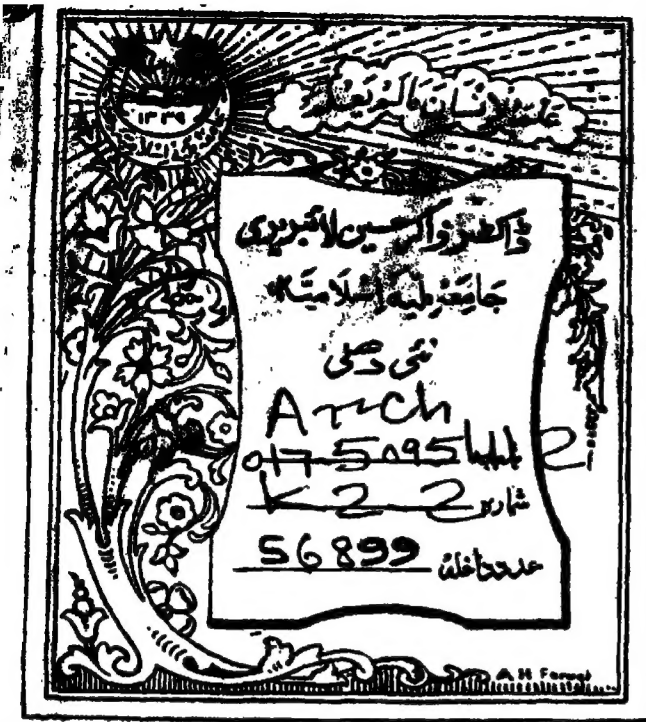 ۱۳۳۹
علم الانسان مالم يعلم
ڈاکٹر ذاکر حسین لائبریری
جامعہ ملیہ اسلامیہ
نئی دہلی
Arch
017.5095
K 2 2 شمار
56899 عدد داخلہ
A. H. Farooqi